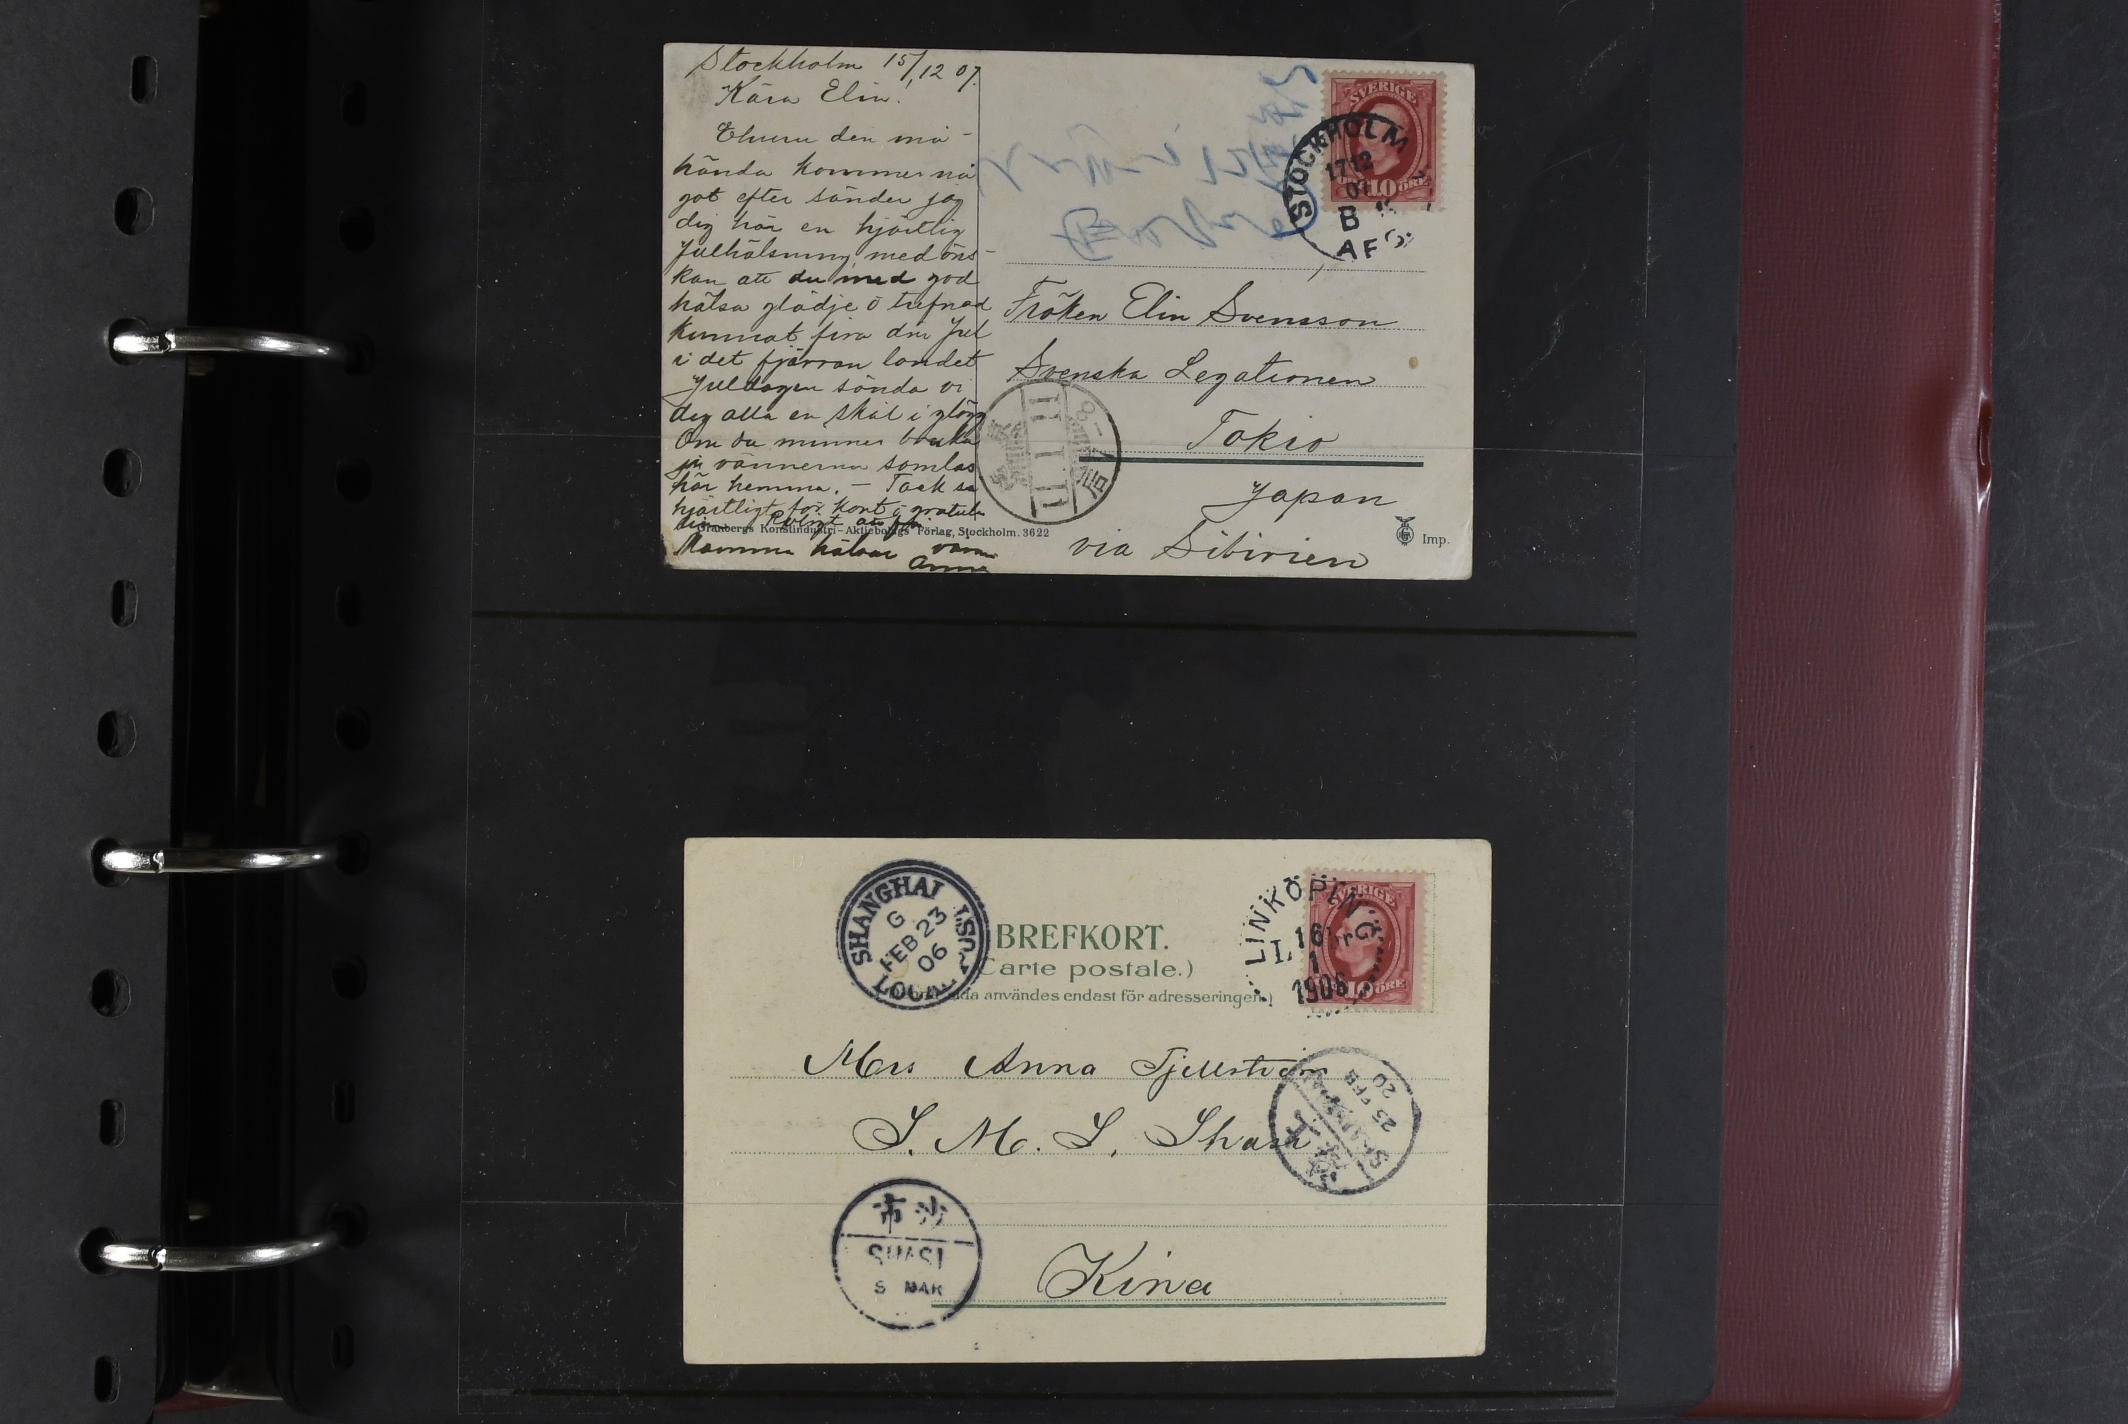 Stockholm 15/12 07.
Kära Elin!
Ehuru den må-
hända kommer nå
got efter sänder jag
dig här en hjärtlig
Julhälsning med öns-
kan att du med god
hälsa glädje o trefnad
kunnat fira din Jul
i det fjärran landet
Juldagen sända vi
dig alla en skål i glögg
Om du minnes bruka
vännerna samlas
här hemma. — Tack så
hjärtligt för kort o gratula
Mamma hälsar
Anna
Granbergs Konstindustri-Aktiebolags Förlag, Stockholm. 3622
SVERIGE
10 ÖRE
STOCKHOLM
17 12
07
B
AFG
Fröken Elin Svensson
Svenska Legationen
Tokio
Japan
via Sibirien
Imp.
SHANGHAI
G
FEB 23
06
LOCAL
BREFKORT.
(Carte postale.)
användes endast för adresseringen.)
SVERIGE
10 ÖRE
LINKÖPING
16
1
1906
Mrs Anna Tjellström
S. M. S. Shasi
23 FEB
20
沙市
SHASI
5 MAR
Kina